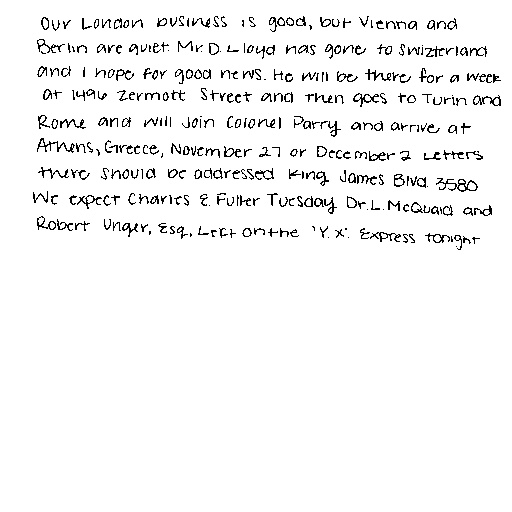 Our London business is good, but Vienna and
Berlin are quiet. Mr. D. Lloyd has gone to Swizterland
and I hope for good news. He will be there for a week
at 1496 Zermott Street and then goes to Turin and
Rome and will join Colonel Parry and arrive at
Athens, Greece, November 27 or December 2. Letters
there should be addressed King James Blvd. 3580
We expect Charles E. Fuller Tuesday. Dr. L. McQuaid and
Robert Unger, Esq., Left on the 'Y.X'. Express tonight